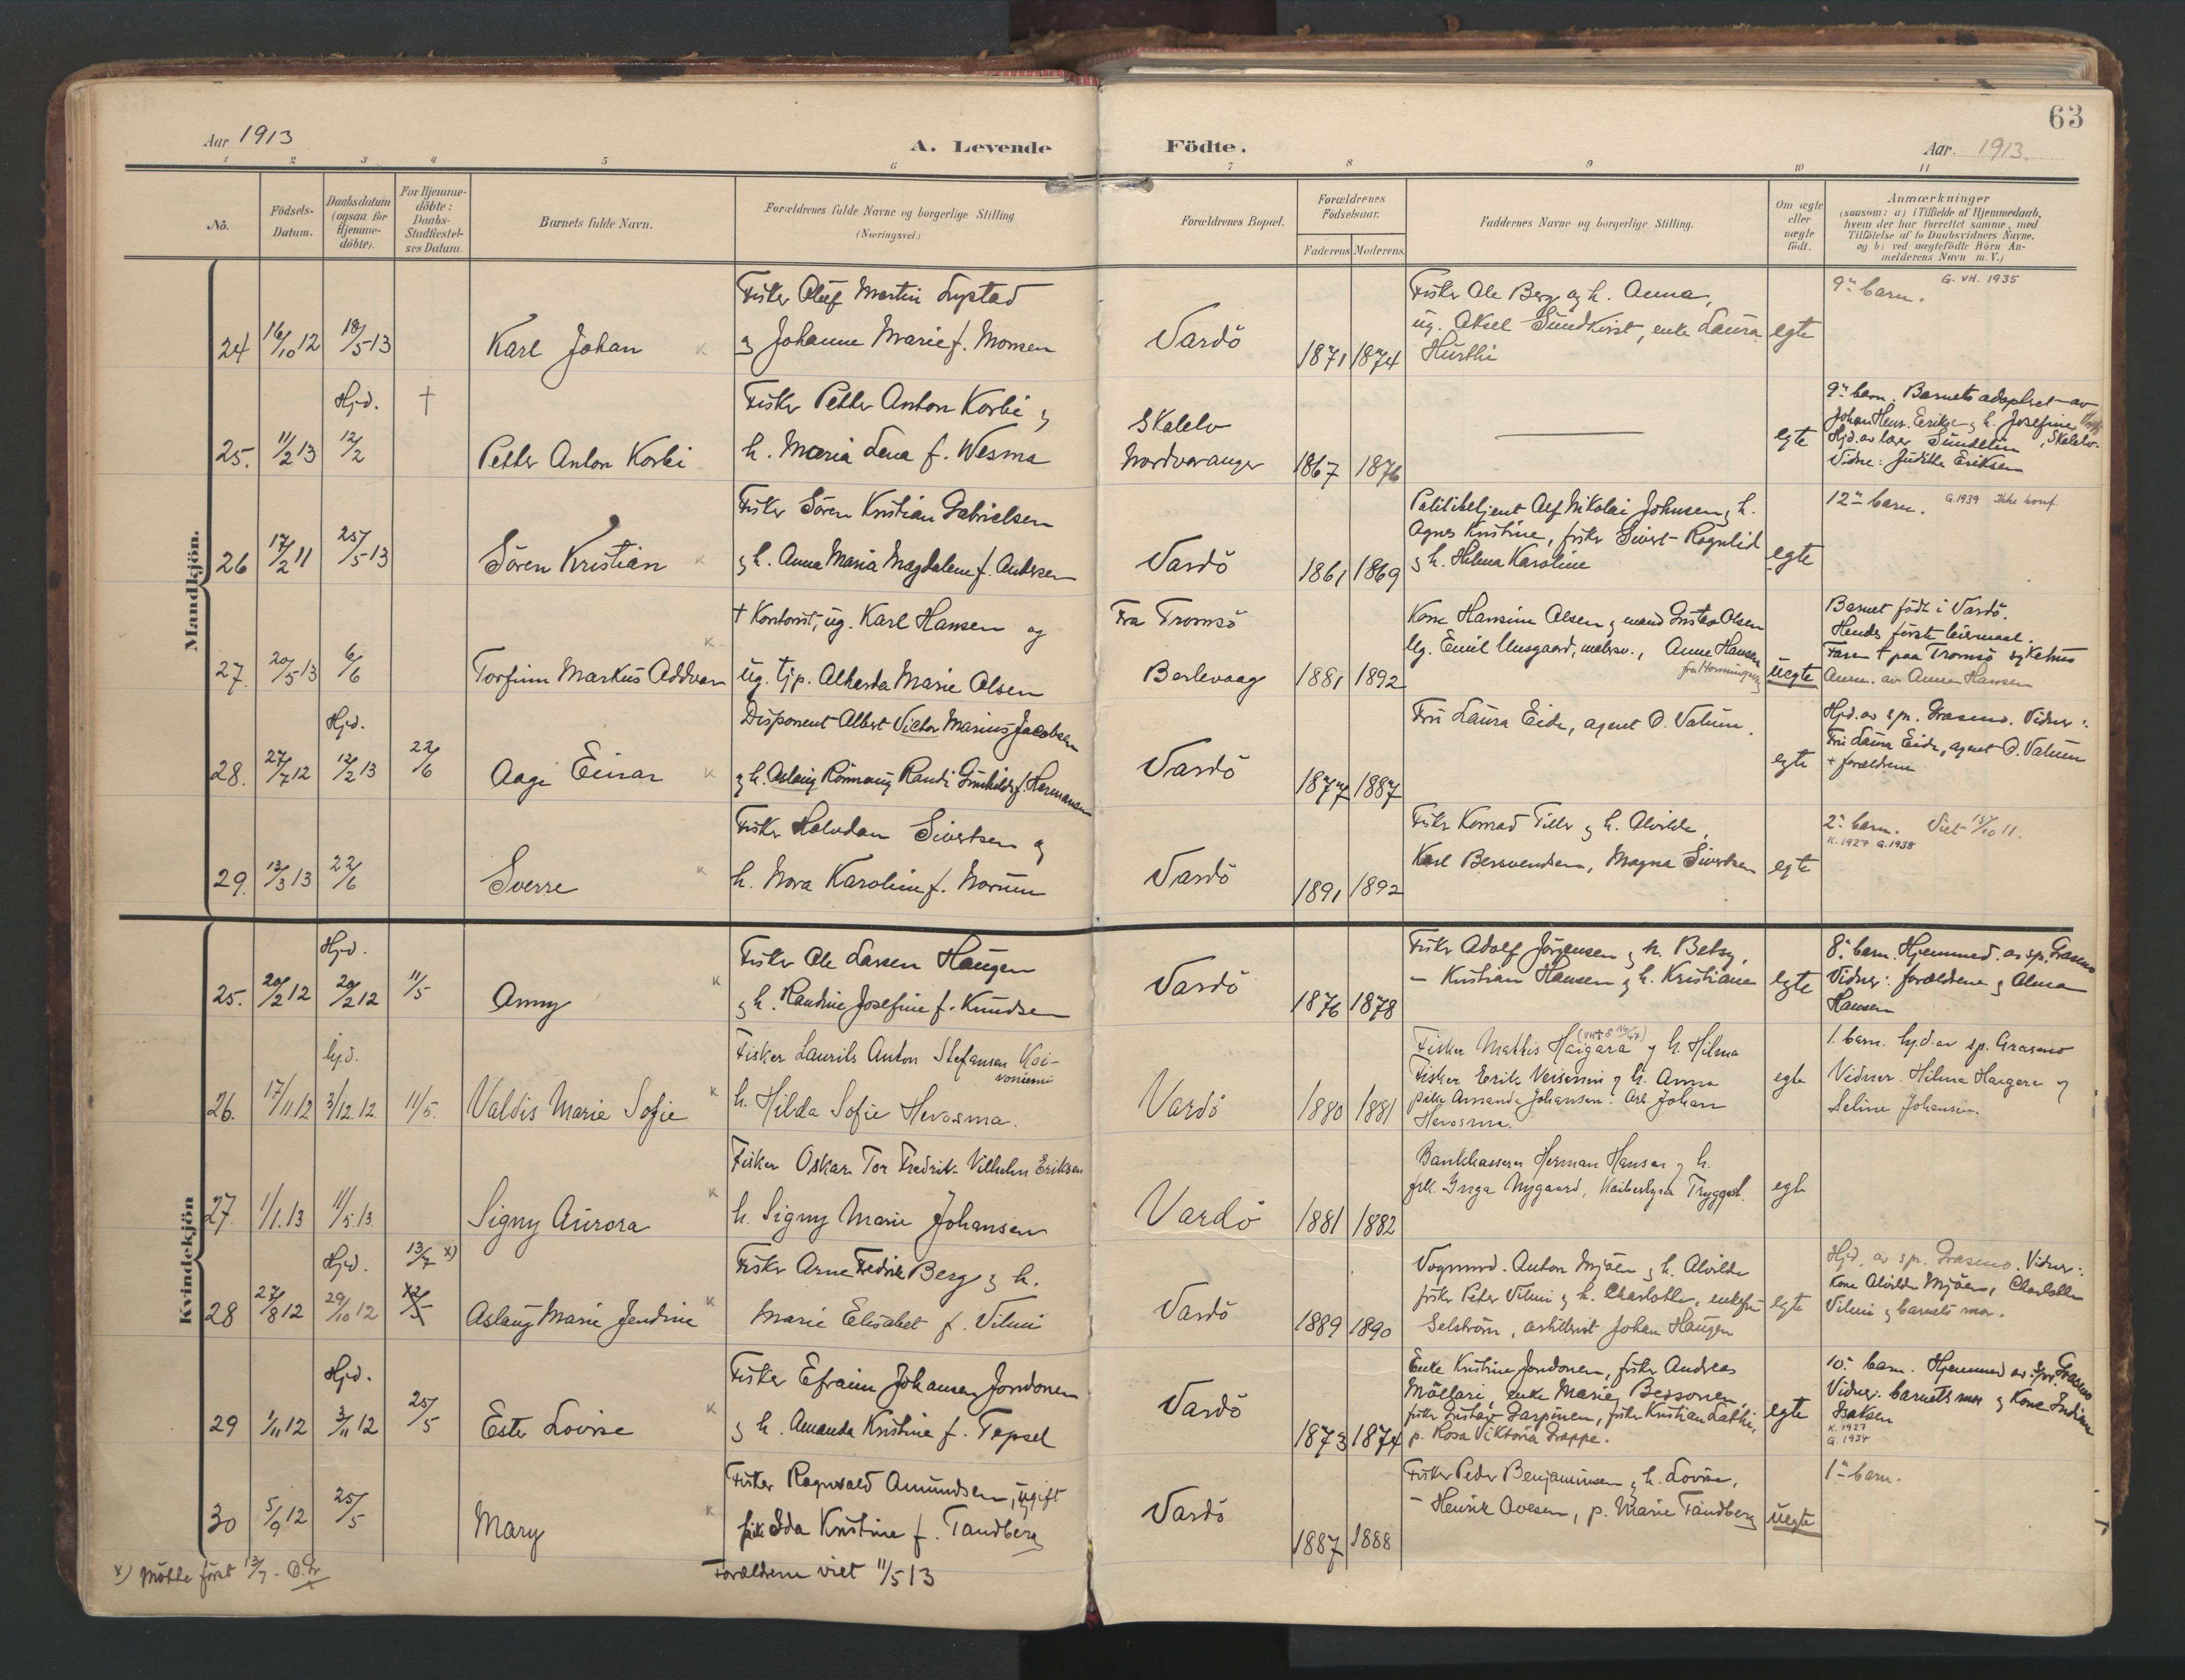 63
Aar 1913
A. Levende Födte.
Aar. 1913.
1 2 3 4 5 6 7 8 9 10 11
No.
Födsels-
Datum.
Daabsdatum
(ogsaa for
Hjemme-
döbte).
For Hjemme-
döbte:
Daabs-
Stadfæstel-
ses Datum.
Barnets fulde Navn.
Forældrenes fulde Navne og borgerlige Stilling
(Næringsvei.)
Forældrenes Bopæl.
Forældrenes
Födselsaar.
Faderens Moderens
Faddernes Navne og borgerlige Stilling.
Om ægte
eller
uægte
födt.
Anmærkninger
(saasom: a) i Tilfælde af Hjemmedaab,
hvem der har forrettet samme, med
Tilföielse af to Daabsvidners Navne.
og b) ved uægtefödte Börn An-
melderens Navn m. V.)
Mandkjön.
24 16/10 12 18/5 13 Karl Johan
Fisker Oluf Martin Lystad
og Johanne Marie f. Monsen
Vardö 1871 1874
Fisker Ole Berg og h. Anna,
ug. Aksel Sundkvist, enke Laura
Hurthi
egte
9de barn. G. VH. 1935
25. 11/2 13 Hjd. 12/2 † Petter Anton Korbi
Fisker Petter Anton Korbi og
h. Maria Lena f. Wesma
Skalelv
Nordvaranger 1867 1876
egte
9de barn. Barnets adoptert av
Johan Henr. Erikse og h. Josefine
Hjd. av lærer Sundelin, Skalelv.
Vidne: Judithe Eriksen
26 17/2 11 25/5 13 Sören Kristian
Fisker Sören Kristian Gabrielsen
og h. Anna Maria Magdalena f. Andersen
Vardö 1861 1869
Politibetjent Alf Nikolai Johnsen og h.
Agnes Kristine, fisker Sivert Rognlid
og h. Helma Karoline
egte
12te barn. G. 1939 Ikke konf
27. 20/5 13 6/6 Torfinn Markus Addvar
† Kontorist, ug. Karl Hansen og
ug. tjp. Alberta Marie Olsen
Fra Tromsö
Berlevaag 1881 1892
Kone Hansine Olsen og mand Gustav Olsen
Ug. Emil Unsgaard, malersv., Anne Hansen
fra Honningsvåg
uegte
Barnet födt i Vardö.
Hendes förste leiermaal.
Faren † paa Tromsö sykehus
Anm. av Anne Hansen
28. 27/7 12 Hjd. 12/2 13 22/6 Aage Einar
Disponent Albert Victor Marius Jacobsen
og h. Aslaug Rönnaug Randi Gunhild f. Hermansen
Vardö 1877 1887
Fru Laura Eide, agent O. Vatum.
egte
Hjd. av sp. Grasmo. Vidner:
Fru Laura Eide, agent O. Vatum
+ forældrene
29. 13/3 13 22/6 Sverre
Fisker Halvdan Sivertsen og
h. Nora Karoline f. Norum
Vardö 1891 1892
Fisker Konrad Tiller og h. Alvilde,
Karl Bersvendsen, Magna Sivertsen
egte
2de barn. Viet 15/10 11.
K. 1927 G. 1938
Kvindekjön
25. 20/2 12 Hjd. 20/2 12 11/5 Anny
Fisker Ole Larsen Haugen
og h. Haudine Josefine f. Knudsen
Vardö 1876 1878
Fisker Adolf Jörgensen og h. Betsy,
— Kristian Hansen og h. Kristiane
egte
8de barn. Hjemmed. av sp. Grasmo
Vidner: forældrene og Alma
Hansen
26. 17/11.12 hjd. 3/12.12. 11/5. Valdis Marie Sofie
Fisker Laurits Anton Stefansen Koi-
voniemi
h. Hilda Sofie Hevosma.
Vardö 1880 1881
Fisker Mathis Haigara og h. Hilma
Fisker Erik Veisenin og h. Anna
pike Amanda Johansen. Arb. Johan
Hevosma.
egte
1. barn. hjd. av sp. Grasmo
Vidner. Hilma Haigara og
Seline Johansen.
27. 1/1.13 11/5.13. Signy Aurora
Fisker Oskar Tor Fredrik Vilhelm Eriksen
h. Signy Marie Johansen
Vardö 1881 1882
Bankkasserer Herman Hansen og h.
frk. Inga Nygaard,
egte
28 27/8 12 Hjd. 29/10 12 13/7 x) Aslaug Marie Jendine
Fisker Arne Fredrik Berg og h.
Marie Elisabet f. Vilmi
Vardö 1889 1890
Vognmd. Anton Mjöen og h. Alvilde
fisker Peter Vilmi og h. Charlotte, enkefru
Selström, artillerist Johan Haugen
egte
Hjd. av sp. Grasmo. Vidner:
Kone Alvilde Mjöen, Charlotte
Vilmi og barnets mor.
29 1/11 12 Hjd. 3/11 12 25/5 Ester Lovise
Fisker Efraim Johansen Jondonen
og h. Amanda Kristine f. Tepsel
Vardö 1873 1874
Enke Kristine Jondonen, fisker Andreas
Möllari, enke Marie Bessonen,
fisker Gustav Zarpinen, fisker Kristian Lathi,
p. Rosa Viktoria Grappe.
egte
10de barn. Hjemmed av spr. Grasmo
Vidner: barnets mor og Kone Indiane
Isaksen
K. 1927
G. 1934
30 5/9 12 25/5 Mary
Fisker Ragnvald Amundsen, ugift
og pike Ida Kristine f. Tandberg
Vardö 1887 1888
Fisker Peder Benjaminsen og h. Lovise,
— Henrik Ovesen, p. Marie Tandberg
uegte
1ste barn.
x) Mötte först 13/7 -
Forældrene viet 11/5 13